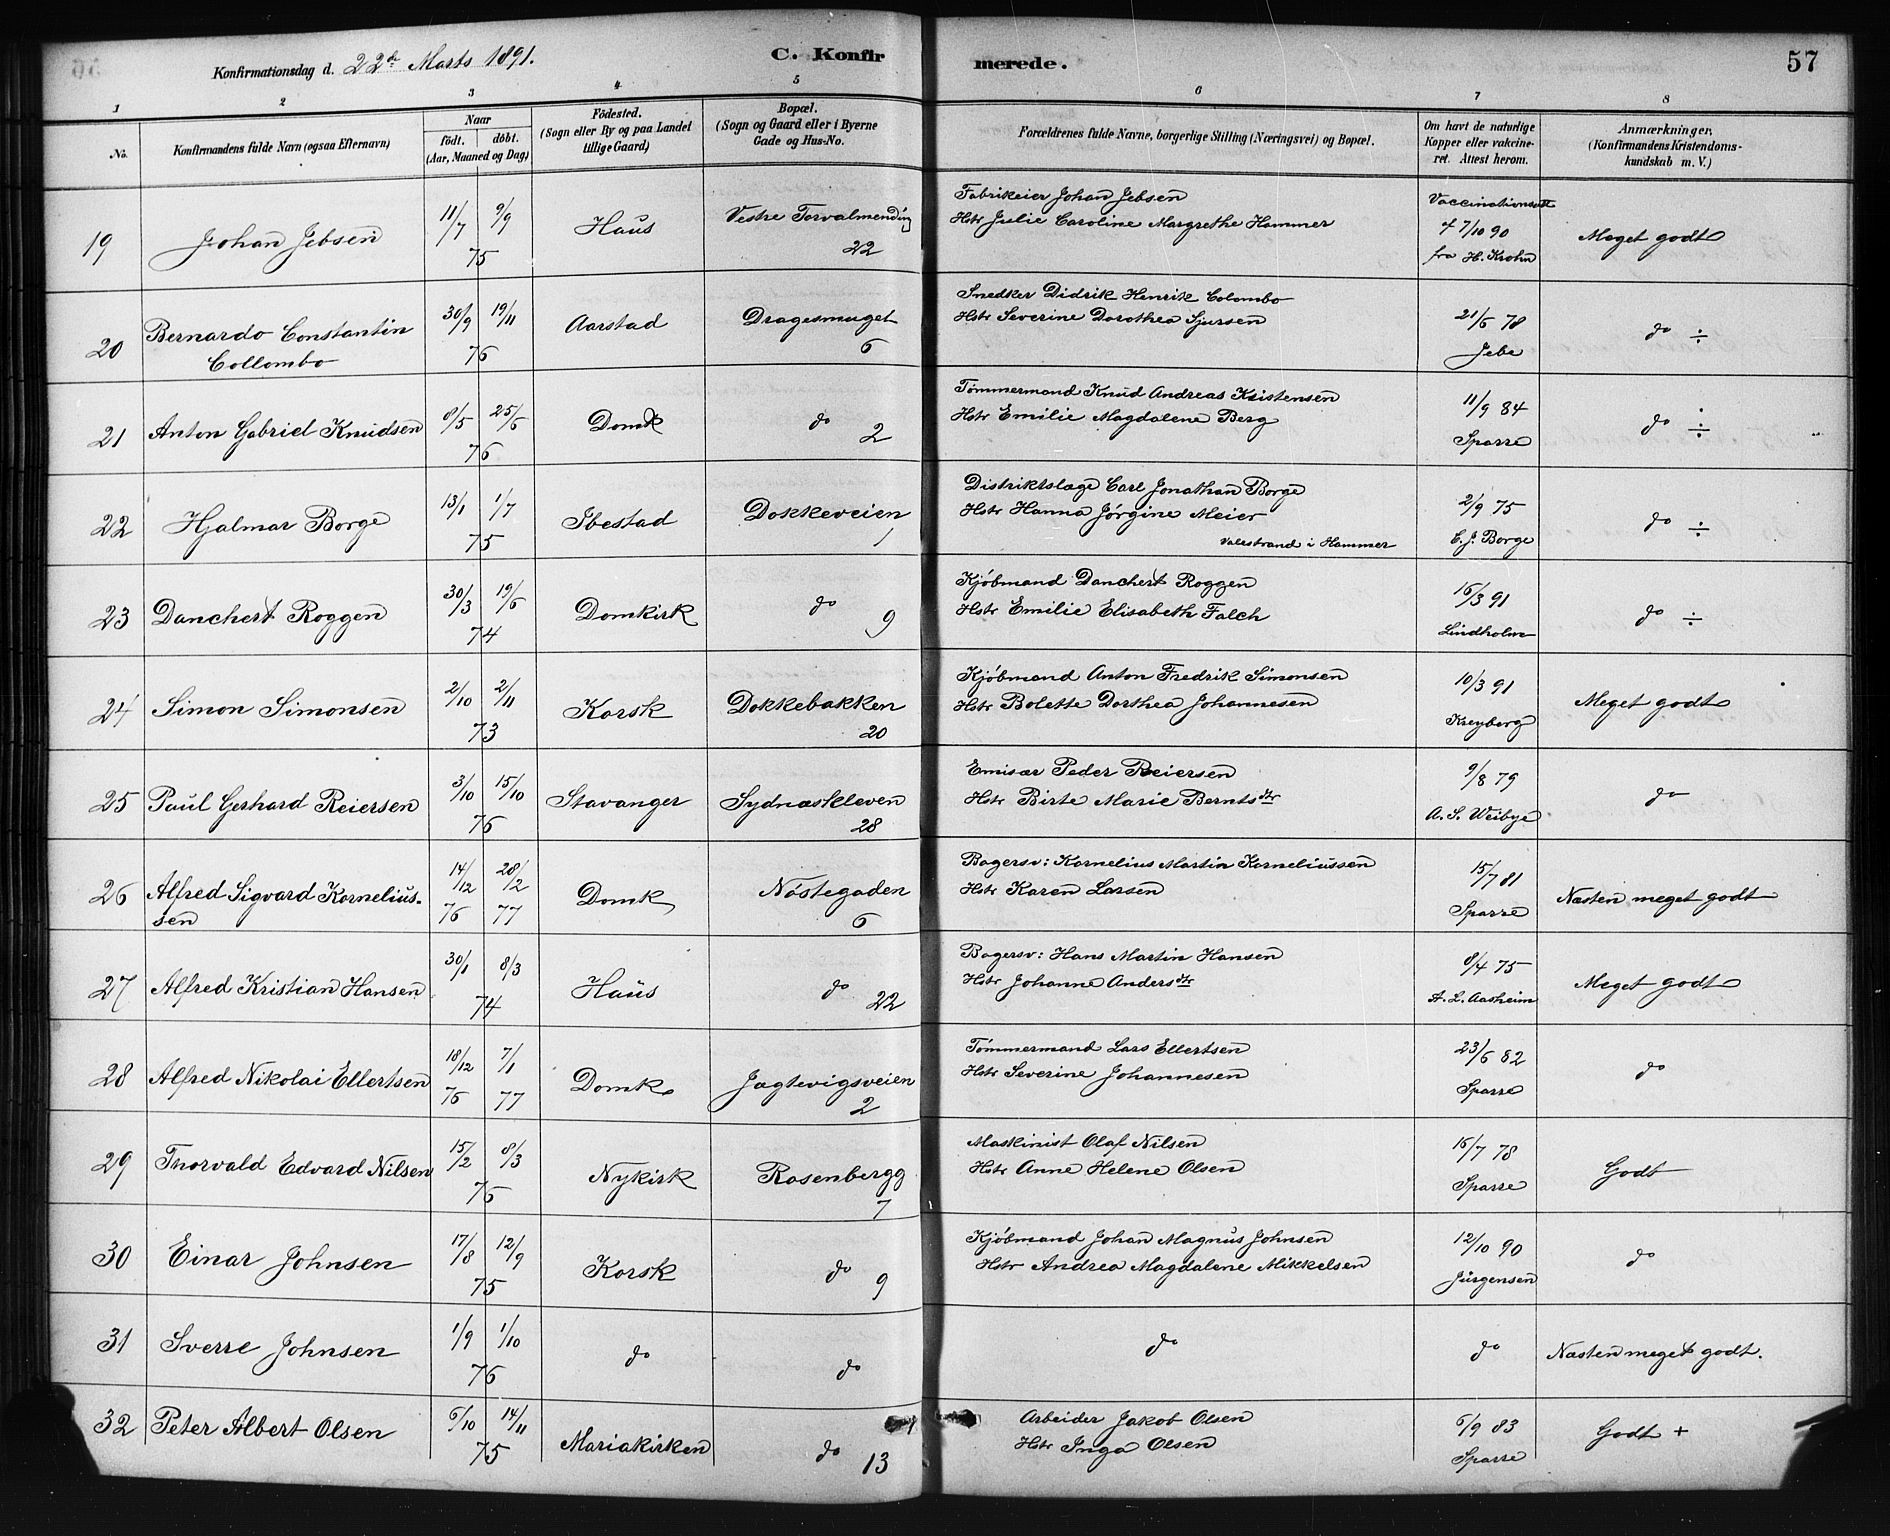 Konfirmationsdag d. 22de Marts 1891.
C. Konfirmerede.
57
1 2 3 4 5 6 7 8
No.
Konfirmandens fulde Navn (ogsaa Efternavn)
Naar
født. døbt.
(Aar, Maaned og Dag)
Fødested.
(Sogn eller By og paa Landet
tillige Gaard)
Bopæl.
(Sogn og Gaard eller i Byerne
Gade og Hus-No.
Forældrenes fulde Navne, borgerlige Stilling (Næringsvei) og Bopæl.
Om havt de naturlige
Kopper eller vakcine-
ret. Attest herom.
Anmærkninger,
(Konfirmandens Kristendoms-
kundskab m. V.)
19 Johan Jebsen 11/7 9/9 75 Haus Vestre Torvalmending 22
Fabrikeier Johan Jebsen
Hstr Julie Caroline Margrethe Hammer
Vaccinationsatt
af 7/10 90
fra H. Krohn
Meget godt
20 Bernardo Constantin
Collombo
30/9 19/11 76 Aarstad Dragesmuget 6
Snedker Didrik Henrik Colombo
Hstr Severine Dorothea Sjursen
21/6 78
Jebe
do ÷
21 Anton Gabriel Knudsen 8/5 25/6 76 Domk do 2
Tømmermand Knud Andreas Kristensen
Hstr Emilie Magdalene Berg
11/9 84
Sparre
do ÷
22 Hjalmar Borge 13/1 1/7 75 Ibestad Dokkeveien 1
Distriktslæge Carl Jonathan Borge
Hstr Hanna Jørgine Meier
Valestrand i Hammer
2/9 75
C. J. Borge
do ÷
23 Danchert Roggen 30/3 19/6 74 Domkirk do 9
Kjøbmand Danchert Roggen
Hstr Emilie Elisabeth Falch
16/3 91
Lindholm
do ÷
24 Simon Simonsen 2/10 2/11 73 Korsk Dokkebakken 20
Kjøbmand Anton Fredrik Simonsen
Hstr Bolette Dorthea Johannesen
10/3 91
Kreyberg
Meget godt
25 Paul Gerhard Reiersen 3/10 15/10 76 Stavanger Sydnæskleven 28
Emisær Peder Reiersen
Hstr Birte Marie Berntsdtr
9/8 79
A. S. Weibye
do
26 Alfred Sigvard Kornelius-
sen
14/12 76 28/2 77 Domk Nøstegaden 6
Bagersv: Kornelius Martin Korneliussen
Hstr Karen Larsen
15/7 81
Sparre
Næsten meget godt
27 Alfred Kristian Hansen 30/1 8/3 74 Haus do 22
Bagersv: Hans Martin Hansen
Hstr Johanne Andersdtr
8/4 75
A. L. Aasheim
Meget godt
28 Alfred Nikolai Ellertsen 18/12 76 7/1 77 Domk Jægtevigsveien 2
Tømmermand Lars Ellertsen
Hstr Severine Johannesen
23/6 82
Sparre
do
29 Thorvald Edvard Nilsen 15/2 8/3 76 Nykirk Rosenbergg 7
Maskinist Olaf Nilsen
Hstr Anne Helene Olsen
16/7 78
Sparre
Godt
30 Einar Johnsen 17/8 12/9 75 Korsk do 9
Kjøbmand Johan Magnus Johnsen
Hstr Andrea Magdalene Mikkelsen
12/10 90
Jürgensen
do
31 Sverre Johnsen 1/9 1/10 76 do do
do
do
Næsten meget godt.
32 Peter Albert Olsen 6/10 14/11 75 Mariakirken do 13
Arbeider Jakob Olsen
Hstr Inga Olsen
6/9 83
Sparre
Godt +